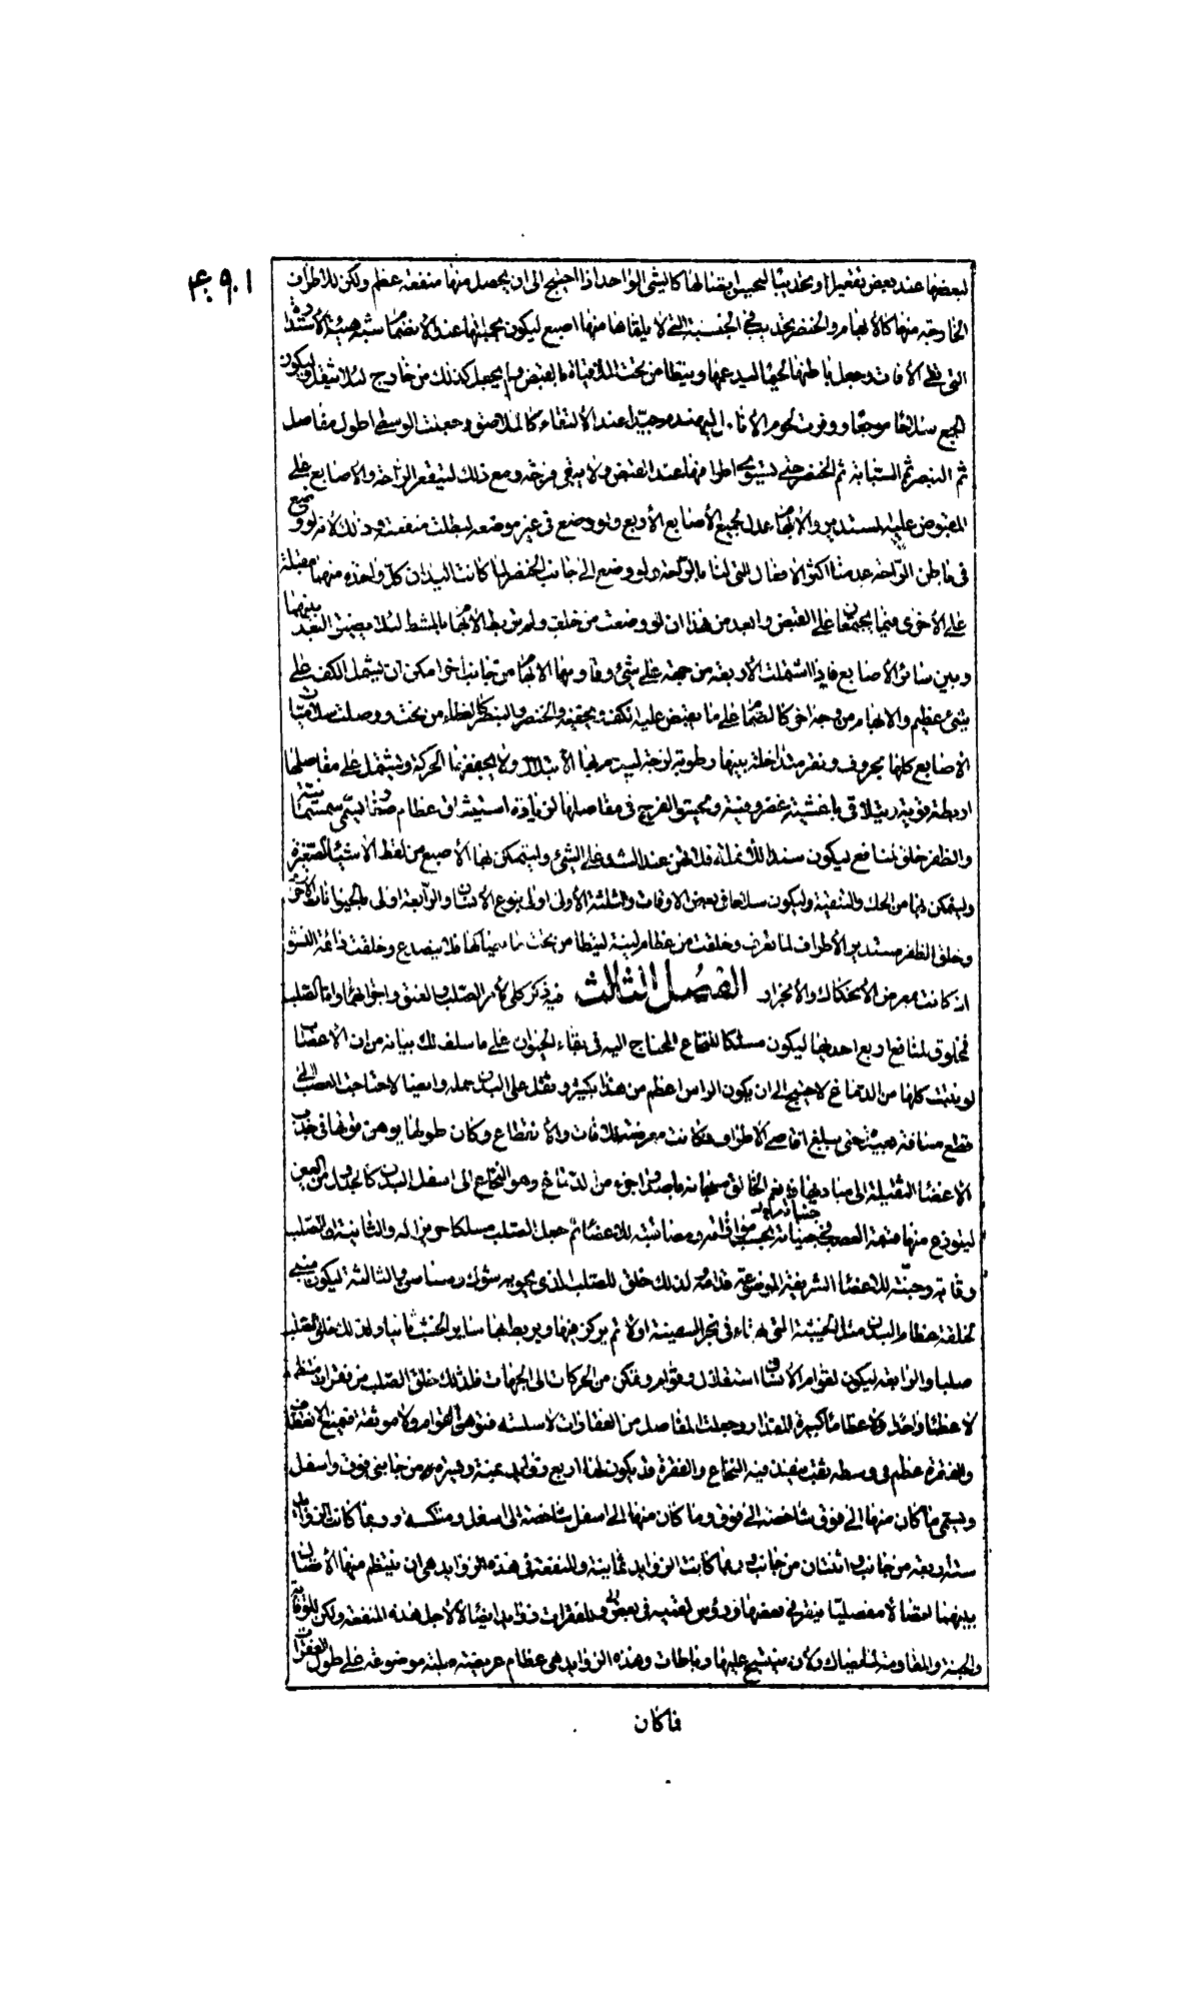 لبعضها عند بعض تقعيرا وتحديبا ليحسن اتصالها كالشئ الواحد اذا احتيج الى ان يحصل منها منفعة عظم ولكن للاطراف
الخارجة منها كالابهام والخنصر تحديب في الجنبة التي لا يلقاها منها اصبع ليكون بجملتها عند الانضمام شبه هيئة الاستدارة
التي تقي الآفات وجعل باطنها لحميا ليدعمها ويتطامن تحت الملاقيات بالقبض ولم يجعل كذلك من خارج لئلا يثقل وليكون
الجميع سلاحا موجعا ووفرت لحوم الانامل لتهندم جيدا عند الالتقاء كالملاصق وجعلت الوسطى اطول مفاصل
ثم البنصر ثم السبابة ثم الخنصر حتى يستوي اطرافها عند القبض ولا يبقى فرجة ومع ذلك ليتقعر الراحة والاصابع على
المقبوض عليه المستدير والابهام عدل لجميع الاصابع الاربع ولو وضع في غير موضعه لبطلت منفعته وذلك لانه لو وضع
في باطن الراحة عدمنا اكثر الافعال التي لنا بالراحة ولو وضع الى جانب الخنصر لما كانت اليدان كل واحدة منهما مقبلة
على الاخرى فيما يجتمعان على القبض وابعد من هذا ان لو وضعت من خلف ولم تربط الابهام بالمشط لئلا يضيق البعد بينها
وبين سائر الاصابع فاذا اشتملت الاربعة من جهة على شئ وقاومها الابهام من جانب اخر امكن ان يشتمل الكف على
شئ عظيم والابهام من وجه اخر كالصمام على ما يقبض عليه الكف ويخفيه والخنصر والبنصر كالغطاء من تحت ووصلت سلاميات
الاصابع كلها بحروف ونقر متداخلة بينها رطوبة لزجة ليدوم بها الابتلال ولا يجففها الحركة وتشتمل على مفاصلها
اربطة قوية وتتلاقى باغشية غضروفية ويحشو الفرج في مفاصلها لزيادة استيثاق عظام صغار تسمى سمسمانية
والظفر خلق لمنافع ليكون سندا للانملة فلا تهن عند الشد على الشئ وليتمكن بها الاصبع من لقط الاشياء الصغيرة
وليتمكن بها من الحك والتنقية وليكون سلاحا في بعض الاوقات والثلثة الاولى اولى بنوع الانسان والرابعة اولى بالحيوانات الاخرى
وخلق الظفر مستدير الاطراف لما يعرف وخلقت من عظام لينة ليتطامن تحت ما يصاكها فلا ينصدع وخلقت دائمة النشو
اذ كانت معرض الانحكاك والانجراد الفصل الثالث في ذكر كلي لامر الصلب والعنق واجزائهما واما الصلب
فمخلوق لمنافع اربع احدها ليكون مسلكا للنخاع المحتاج اليه في بقاء الحيوان على ما سلف لك بيانه من ان الاعصاب
لو نبتت كلها من الدماغ لاحتيج الى ان يكون الراس اعظم من هذا بكثير وثقل على البدن حمله وايضا لاحتاجت العصب الى
قطع مسافة بعيدة حتى يبلغ اقاصي الاطراف فكانت معرضة للآفات والانقطاع وكان طولها يوهن قوتها في جذب
الاعضاء الثقيلة الى مباديها فانعم الخالق سبحانه باصدار جزء من الدماغ وهو النخاع الى اسفل البدن كالجدول من العين
ليتوزع منها قسمة العصب في جنباته بحسب موازاة ومصاقبة للاعضاء ثم جعل الصلب مسلكا حريزا له والثانية ان الصلب
وقاية وجنة للاعضاء الشريفة الموضوعة قدامه ولذلك خلق للصلب الذي يحويه شوك وسناسن والثالثة ليكون مبنى
لخلقة عظام البدن مثل الخشبة التي تهيأ في نجر السفينة اولا ثم يركز فيها ويربط بها سائر الخشب ثانيا ولذلك خلق الصلب
صلبا والرابعة ليكون لقوام الانسان استقلال وقوام وتمكن من الحركات الى الجهات فلذلك خلق الصلب من فقرات منتظمة
لا عظما واحدا ولا عظاما كثيرة المقدار وجعلت المفاصل من الفقارات لا سلسة فتوهن القوام ولا موثقة فتمنع الانعطاف
والفقرة عظم في وسطه ثقب ينفذ فيه النخاع والفقرة قد يكون لها اربع زوائد يمنة ويسرة ومن جانبي فوق واسفل
ويسمى ما كان منها الى فوق شاخصة الى فوق وما كان منها الى اسفل شاخصة الى اسفل ومنتكسة وربما كانت الزوائد
ستة اربعة من جانب واثنتان من جانب وربما كانت الزوائد ثمانية والمنفعة في هذه الزوائد هي ان ينتظم منها الاتصال
بينهما اتصالا مفصليا بنقر في بعضها ورؤس لقمية في بعض وللفقرات زوائد ايضا لا لاجل هذه المنفعة ولكن للوقاية
والجنة والمقاومة لما يصاك ولان ينتسج عليها رباطات وهذه الزوائد هي عظام عريضة صلبة موضوعة على طول الفقرات
فما كان